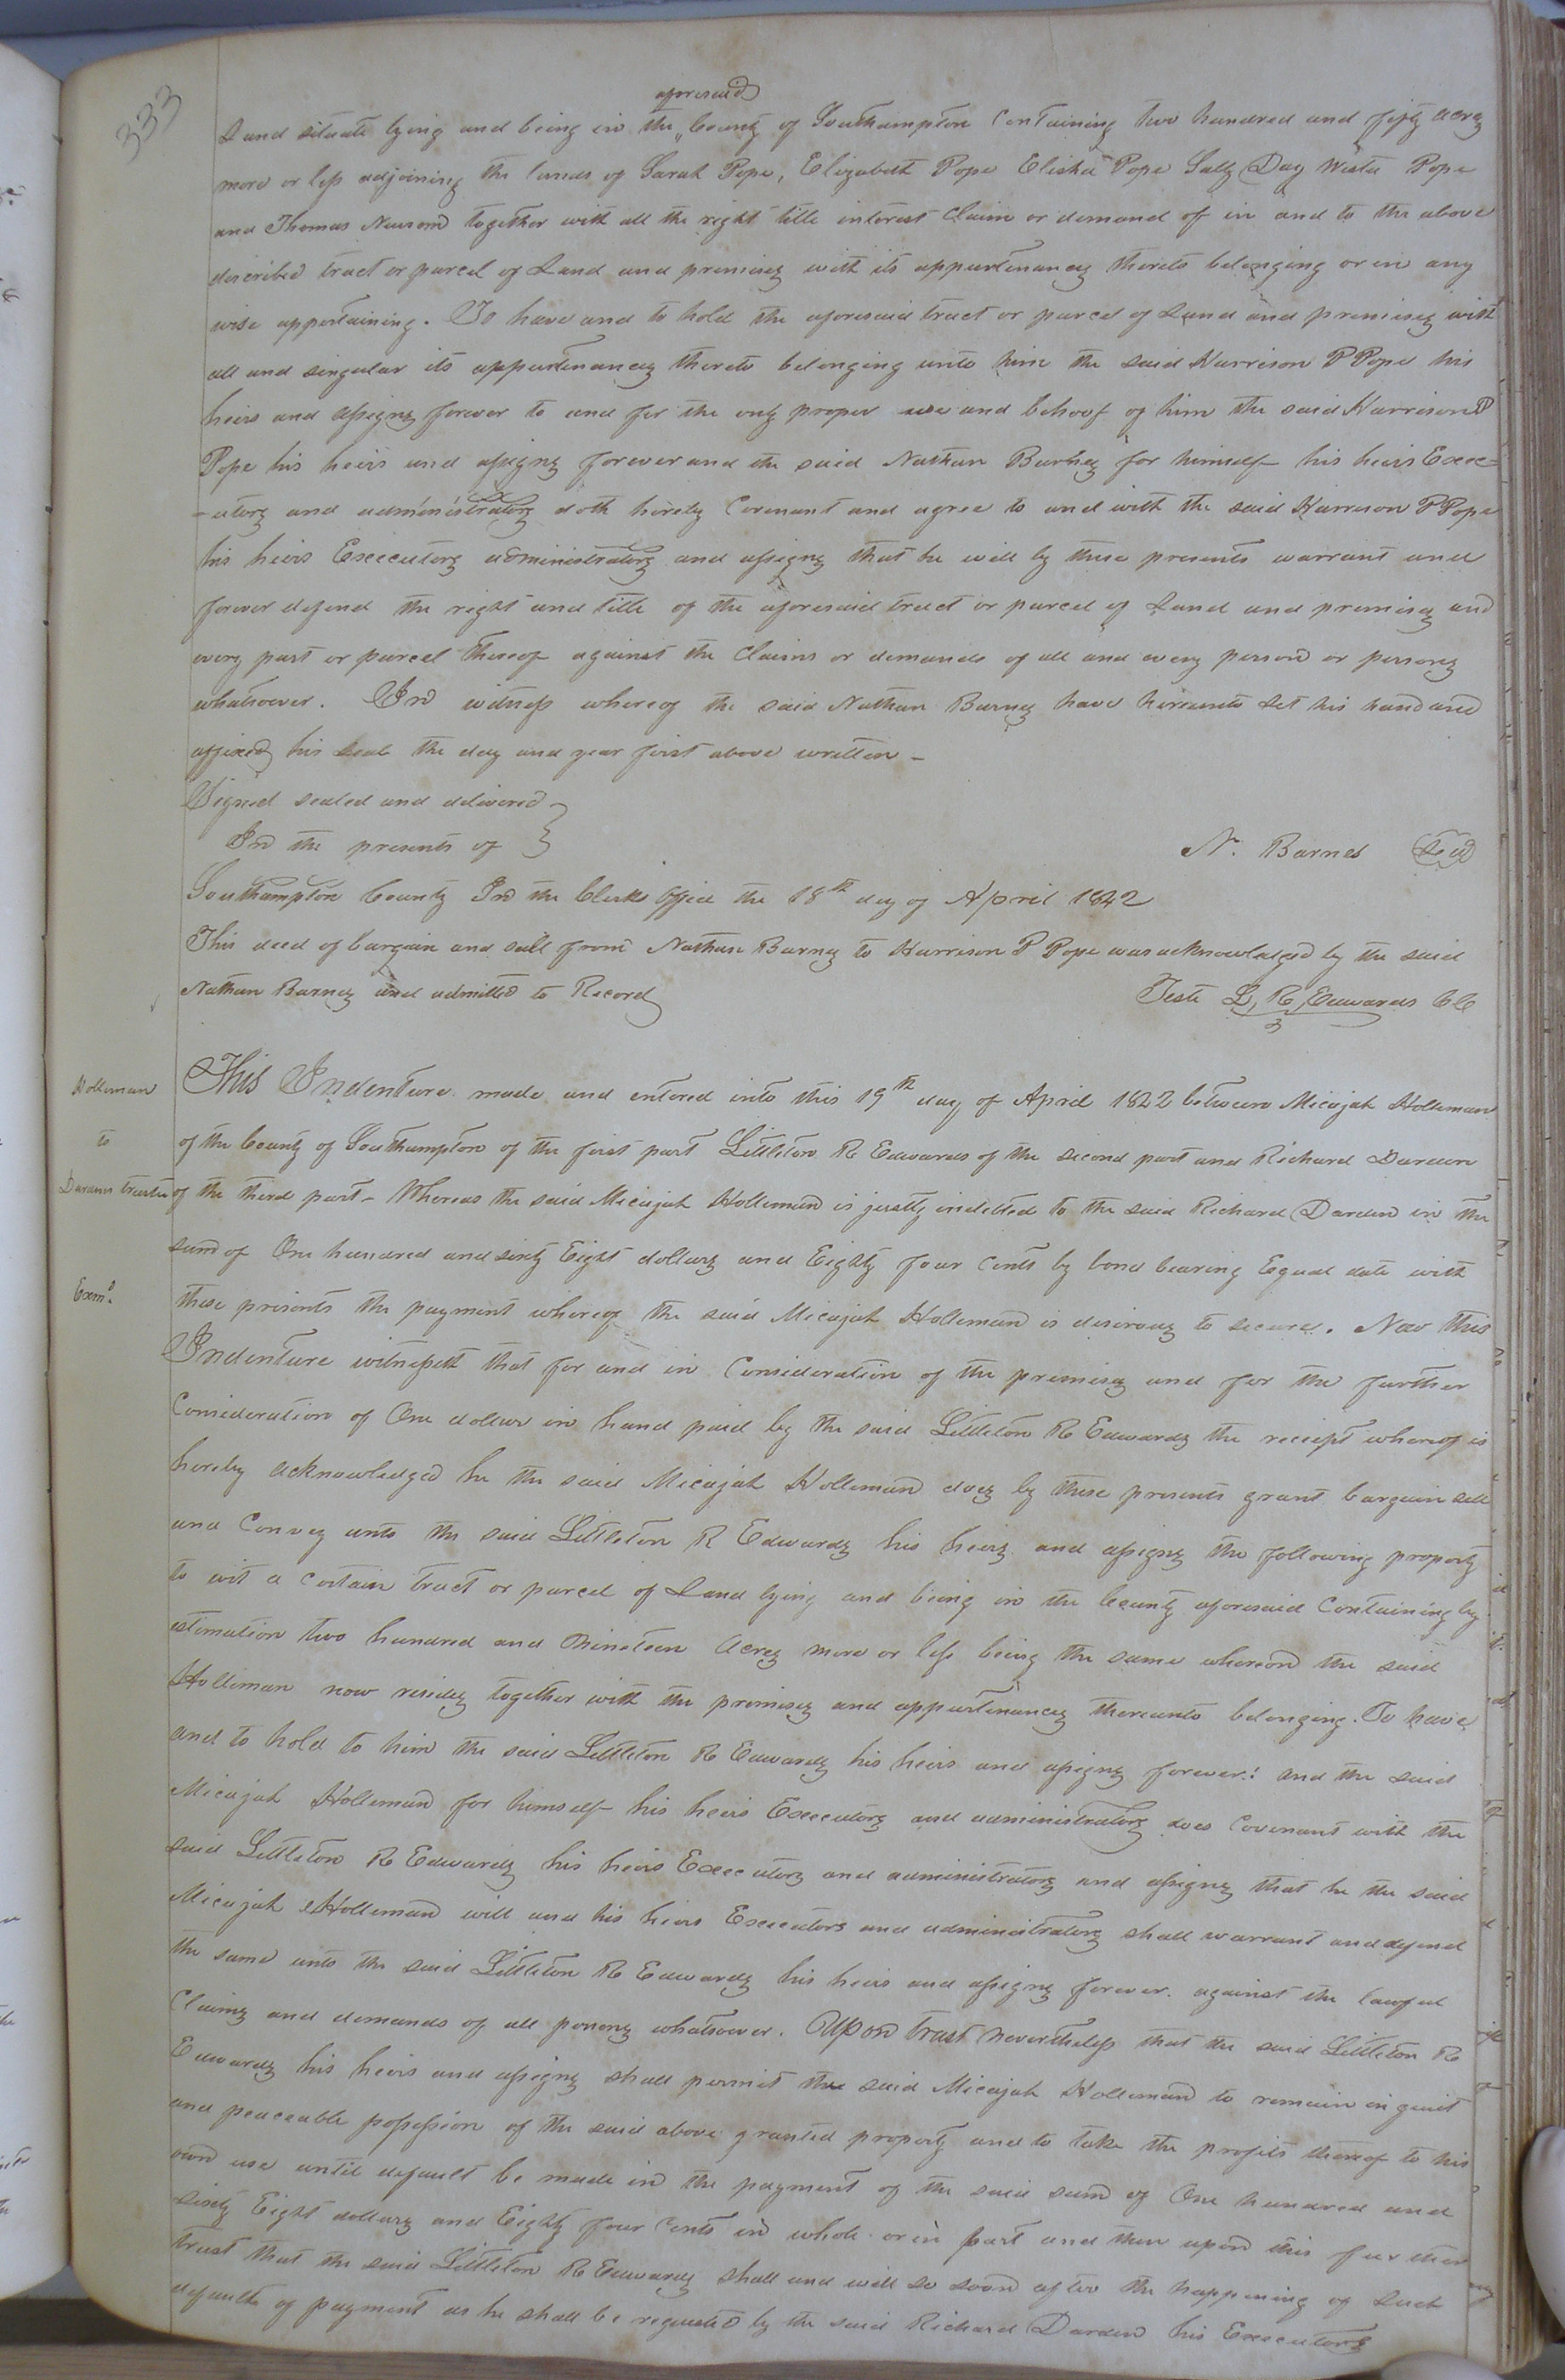 333
aforesaid
Land situate lying and being in the County of Southampton Containing two hundred and fifty acres
more or less adjoining the lands of Sarah Pope, Elizabeth Pope Elisha Pope Sally Day Pope
and Thomas Newsom together with all the right title interest Claim or demand of in and to the above
described tract or parcel of Land and premises with its appurtenances thereto belonging or in any
wise appertaining. To have and to hold the aforesaid tract or parcel of Land and premises with
all and singular its appurtenances thereto belonging unto him the said Harrison P Pope his
heirs and assigns forever to and for the only proper use and behoof of him the said Harrison P
Pope his heirs and assigns forever and the said Nathan Barnes for himself his heirs Exec=
-utors and administrators doth hereby Covenant and agree to and with the said Harrison P Pope
his heirs Executors administrators and assigns that he will by these presents warrant and
forever defend the right and title of the aforesaid tract or parcel of Land and premises and
every part or parcel thereof against the Claims or demands of all and every person or persons
whatsoever. In witness whereof the said Nathan Barnes have hereunto set his hand and
affixed his seal the day and year first above written -
Signed sealed and delivered }
In the presents of }
N. Barnes Seal
Southampton County In the Clerks Office the 18th day of April 1842
This deed of bargain and sale from Nathan Barnes to Harrison P Pope was acknowledged by the said
Nathan Barnes and admitted to Record
Teste L, R, Edwards CC
Holleman
to
Dardens trustee
Exmd.
This Indenture made and entered into this 19th day of April 1842 between Micajah Holleman
of the County of Southampton of the first part Littleton R Edwards of the second part and Richard Darden
of the third part - Whereas the said Micajah Holleman is justly indebted to the said Richard Darden in the
sum of One hundred and sixty Eight dollars and Eighty four Cents by bond bearing Equal date with
these presents the payment whereof the said Micajah Holleman is desirous to secure. Now this
Indenture witnesseth that for and in Consideration of the premises and for the further
Consideration of One dollar in hand paid by the said Littleton R Edwards the receipt whereof is
hereby acknowledged he the said Micajah Holleman does by these presents grant bargain sell
and Convey unto the said Littleton R Edwards his heirs and assigns the following property
to wit a certain tract or parcel of Land lying and being in the County aforesaid Containing by
estimation two hundred and Nineteen Acres more or less being the same whereon the said
Holliman now resides together with the premises and appurtenances thereunto belonging. To have
and to hold to him the said Littleton R Edwards his heirs and assigns forever: and the said
Micajah Holleman for himself his heirs Executors and administrators does Covenant with the
said Littleton R Edwards his heirs Executors and administrators and assigns that he the said
Micajah Holleman will and his heirs Executors and administrators shall warrant and defend
the same unto the said Littleton R Edwards his heirs and assigns forever. against the lawful
Claims and demands of all persons whatsoever. Upon trust nevertheless that the said Littleton R
Edwards his heirs and assigns shall permit the said Micajah Holleman to remain in quiet
and peaceable possession of the said above granted property and to take the profits thereof to his
own use until default be made in the payment of the said sum of One hundred and
sixty Eight dollars and Eighty four Cents in whole or in part and then upon this further
trust that the said Littleton R Edwards shall and will so soon after the happening of such
default of payment as he shall be requested by the said Richard Darden his Executors